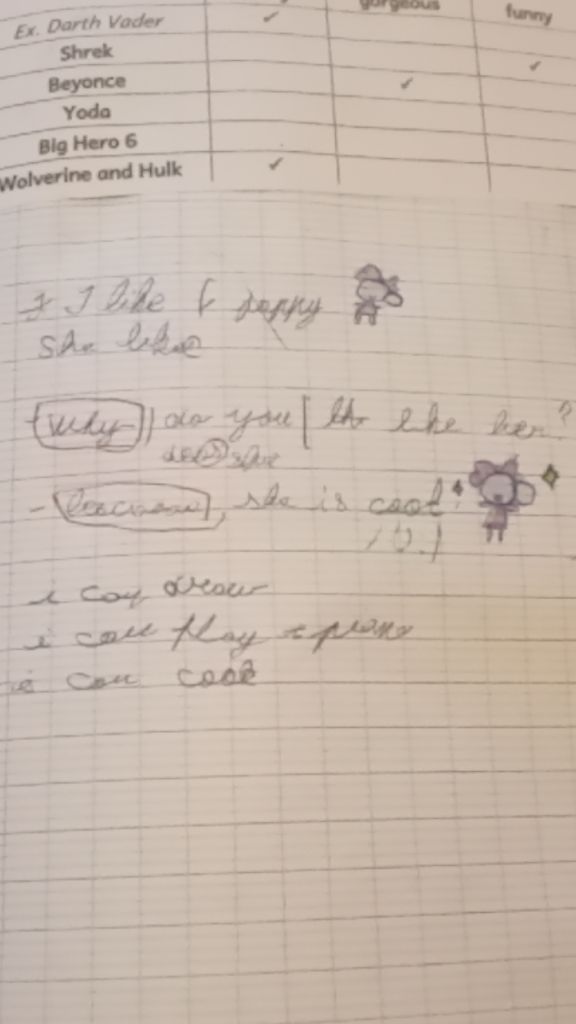 gorgeous funny
Ex. Darth Vader ✓
Shrek ✓
Beyonce ✓
Yoda
Big Hero 6
Wolverine and Hulk ✓
I like
she like
Why do you like her?
she
- because, she is cool!
i can draw
i can play piano
i can cook